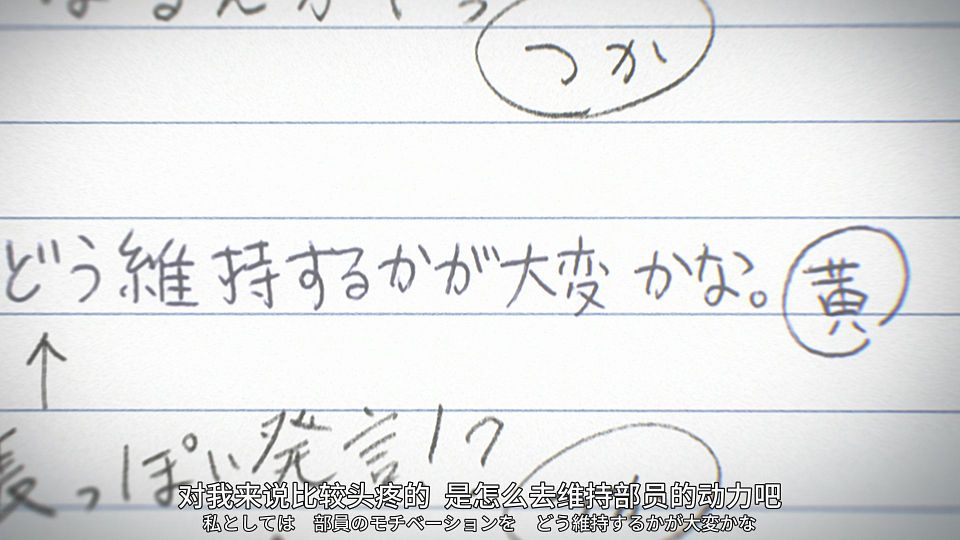 つか
どう維持するかが大変かな。 黄
↑
長っぽい発言!?
对我来说比较头疼的 是怎么去维持部员的动力吧
私としては 部員のモチベーションを どう維持するかが大変かな